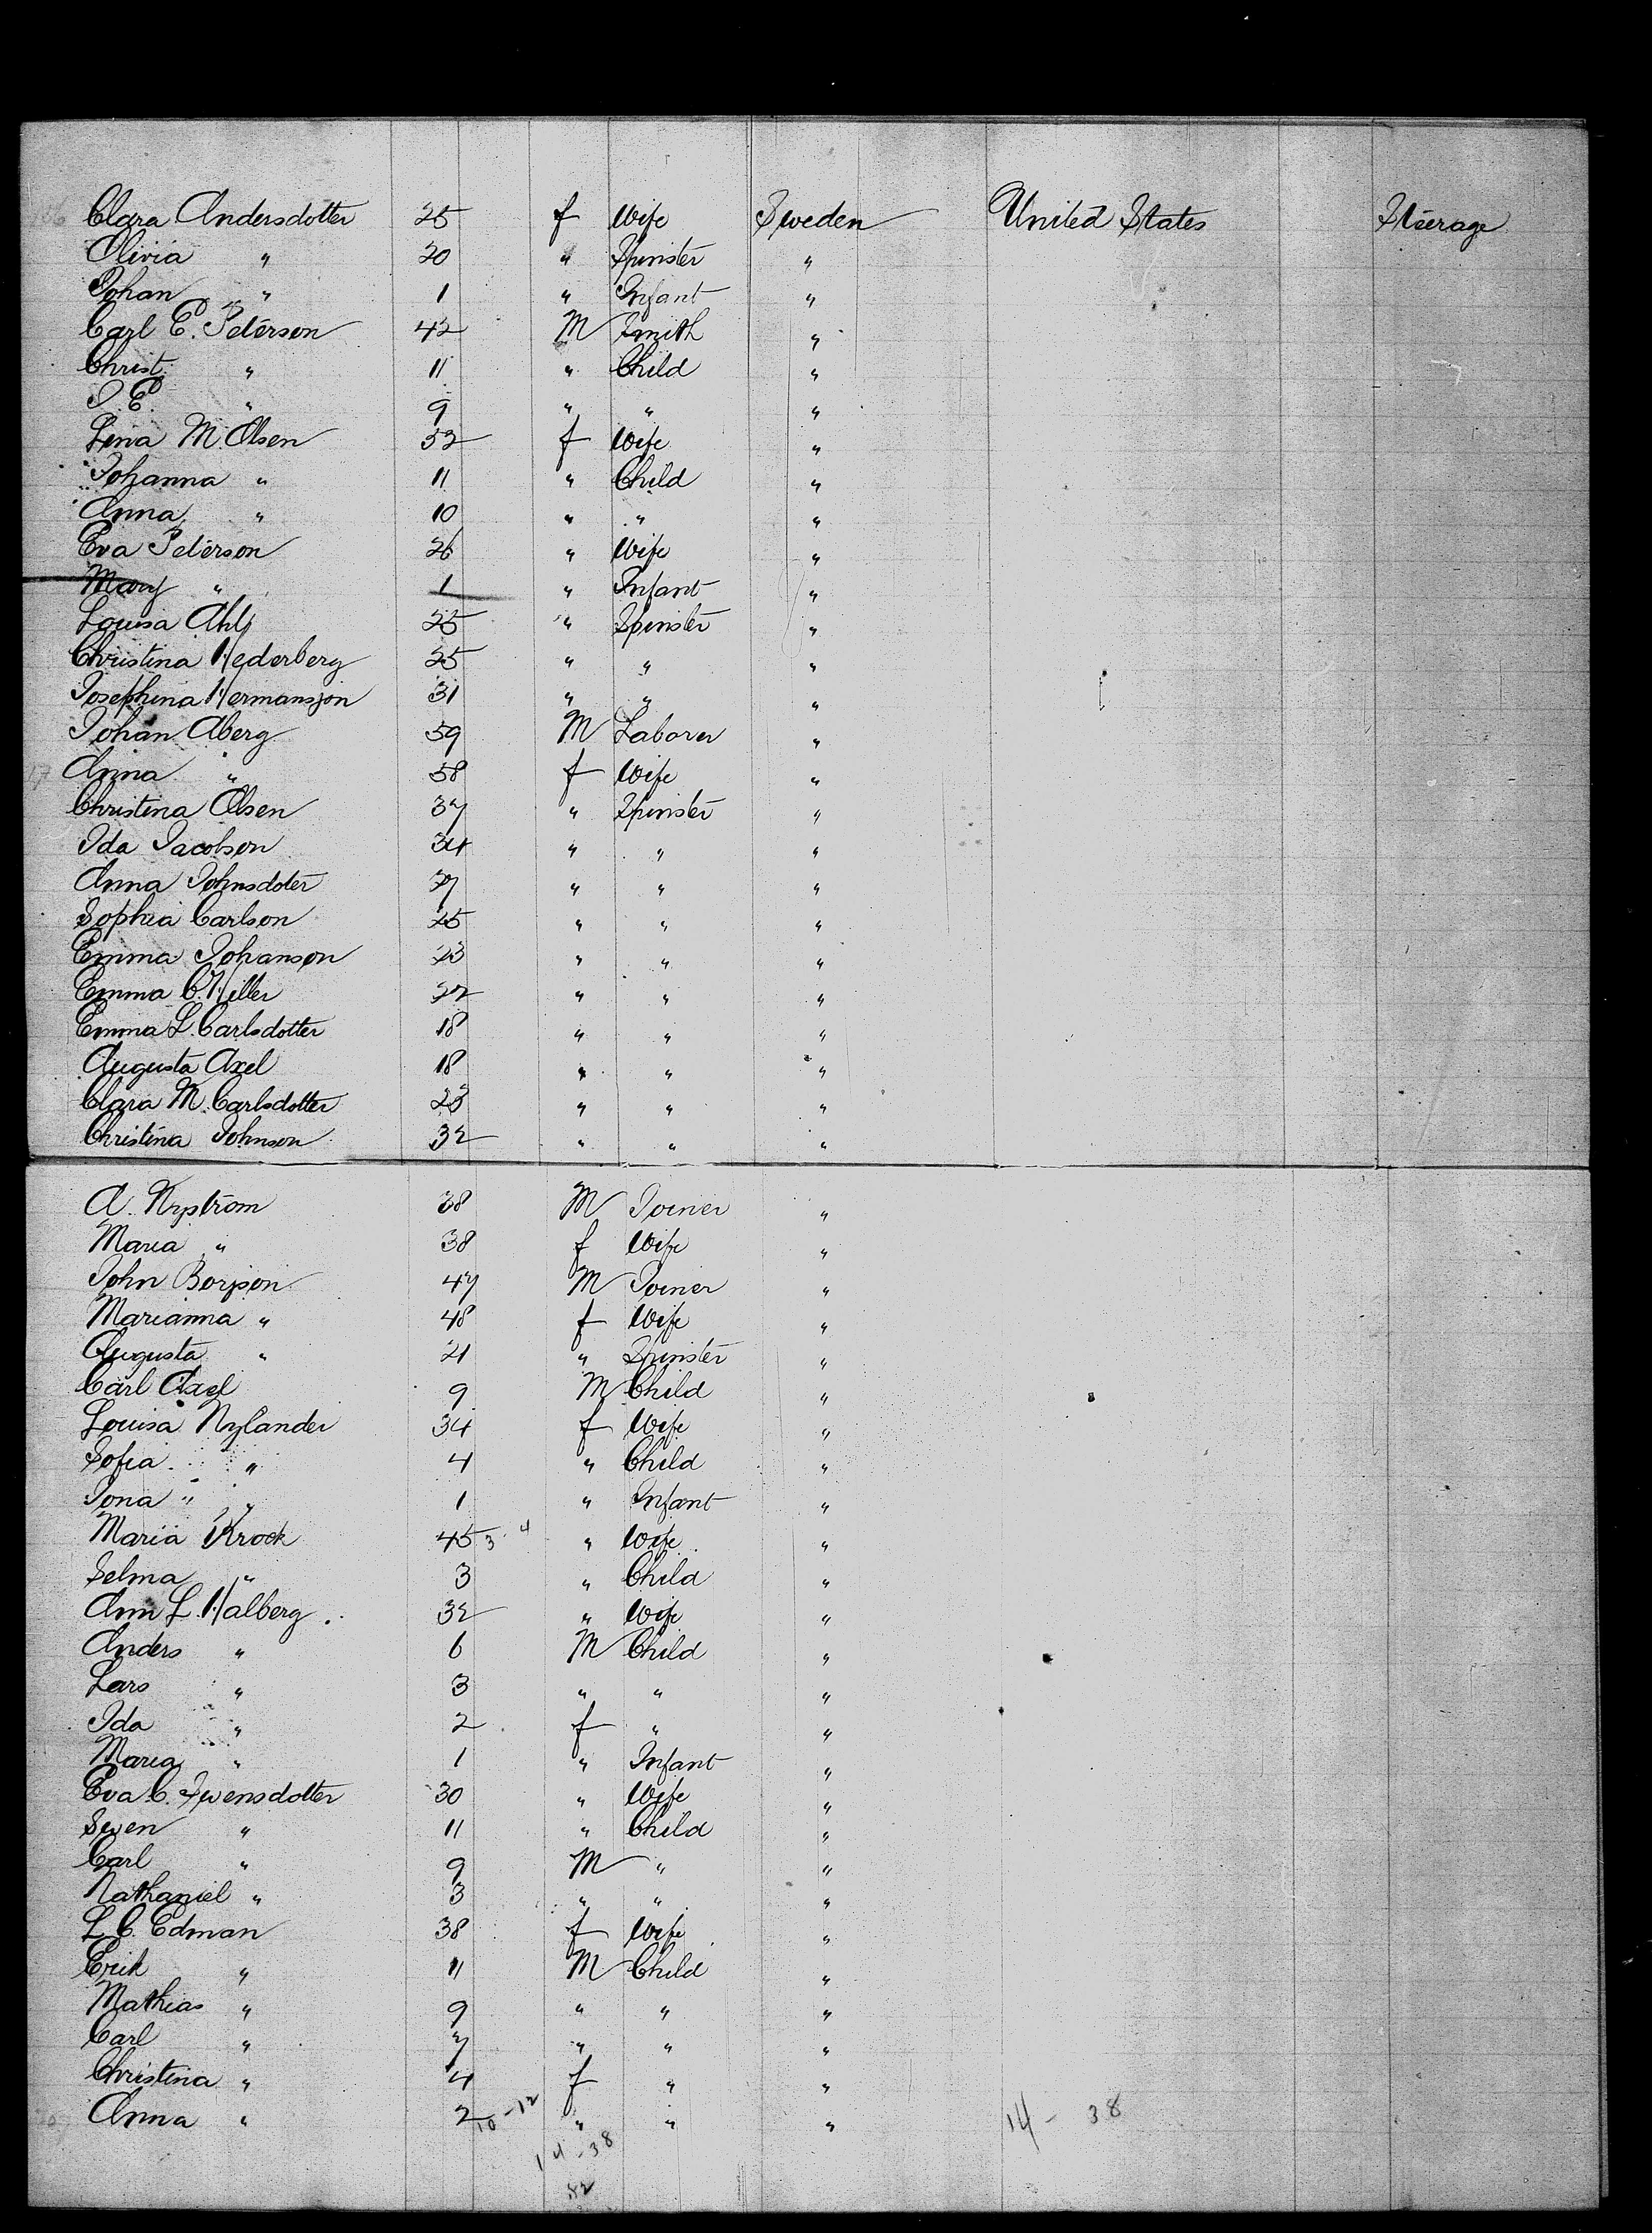 106 Clara Andersdotter 25 f Wife Sweden United States Steerage
Olivia " 20 " Spinster "
Johan " 1 " Infant "
Carl E. Peterson 42 M Smith "
Christ. " 11 " Child "
J. E. " 9 " " "
Lena M. Olsen 32 f Wife "
Johanna " 11 " Child "
Anna " 10 " " "
Eva Peterson 26 " Wife "
Mary " 1 " Infant "
Louisa Ahl 25 " Spinster "
Christina Hederberg 25 " " "
Josephina Hermansson 31 " " "
Johan Aberg 59 M Laborer "
Anna " 58 f Wife "
Christina Olsen 37 " Spinster "
Ida Jacobson 34 " " "
Anna Johnsdoter 27 " " "
Sophia Carlson 25 " " "
Emma Johanson 23 " " "
Emma C. Hiller 22 " " "
Emma L. Carlsdotter 18 " " "
Augusta Axel 18 " " "
Clara M. Carlsdotter 23 " " "
Christina Johnson 32 " " "
A. Nyström 38 M Joiner "
Maria " 38 f Wife "
John Borjson 47 M Joiner "
Marianna " 48 f Wife "
Augusta " 21 " Spinster "
Carl Axel 9 M Child "
Louisa Nylander 34 f Wife "
Sofia " 4 " Child "
Jona " 1 " Infant "
Maria Krook 45 3 4 " Wife "
Selma " 3 " Child "
Ann L. Halberg 32 " Wife "
Anders " 6 M Child "
Lars " 3 " " "
Ida " 2 f " "
Maria " 1 " Infant "
Eva C. Swensdotter 30 " Wife "
Swen " 11 " Child "
Carl " 9 M " "
Nathaniel " 3 " " "
L. C. Edman 38 f Wife "
Erik " 11 M Child "
Mathias " 9 " " "
Carl " 7 " " "
Christina " 4 f " "
Anna " 2 10-12 " " " 14 - 38
14-38
82